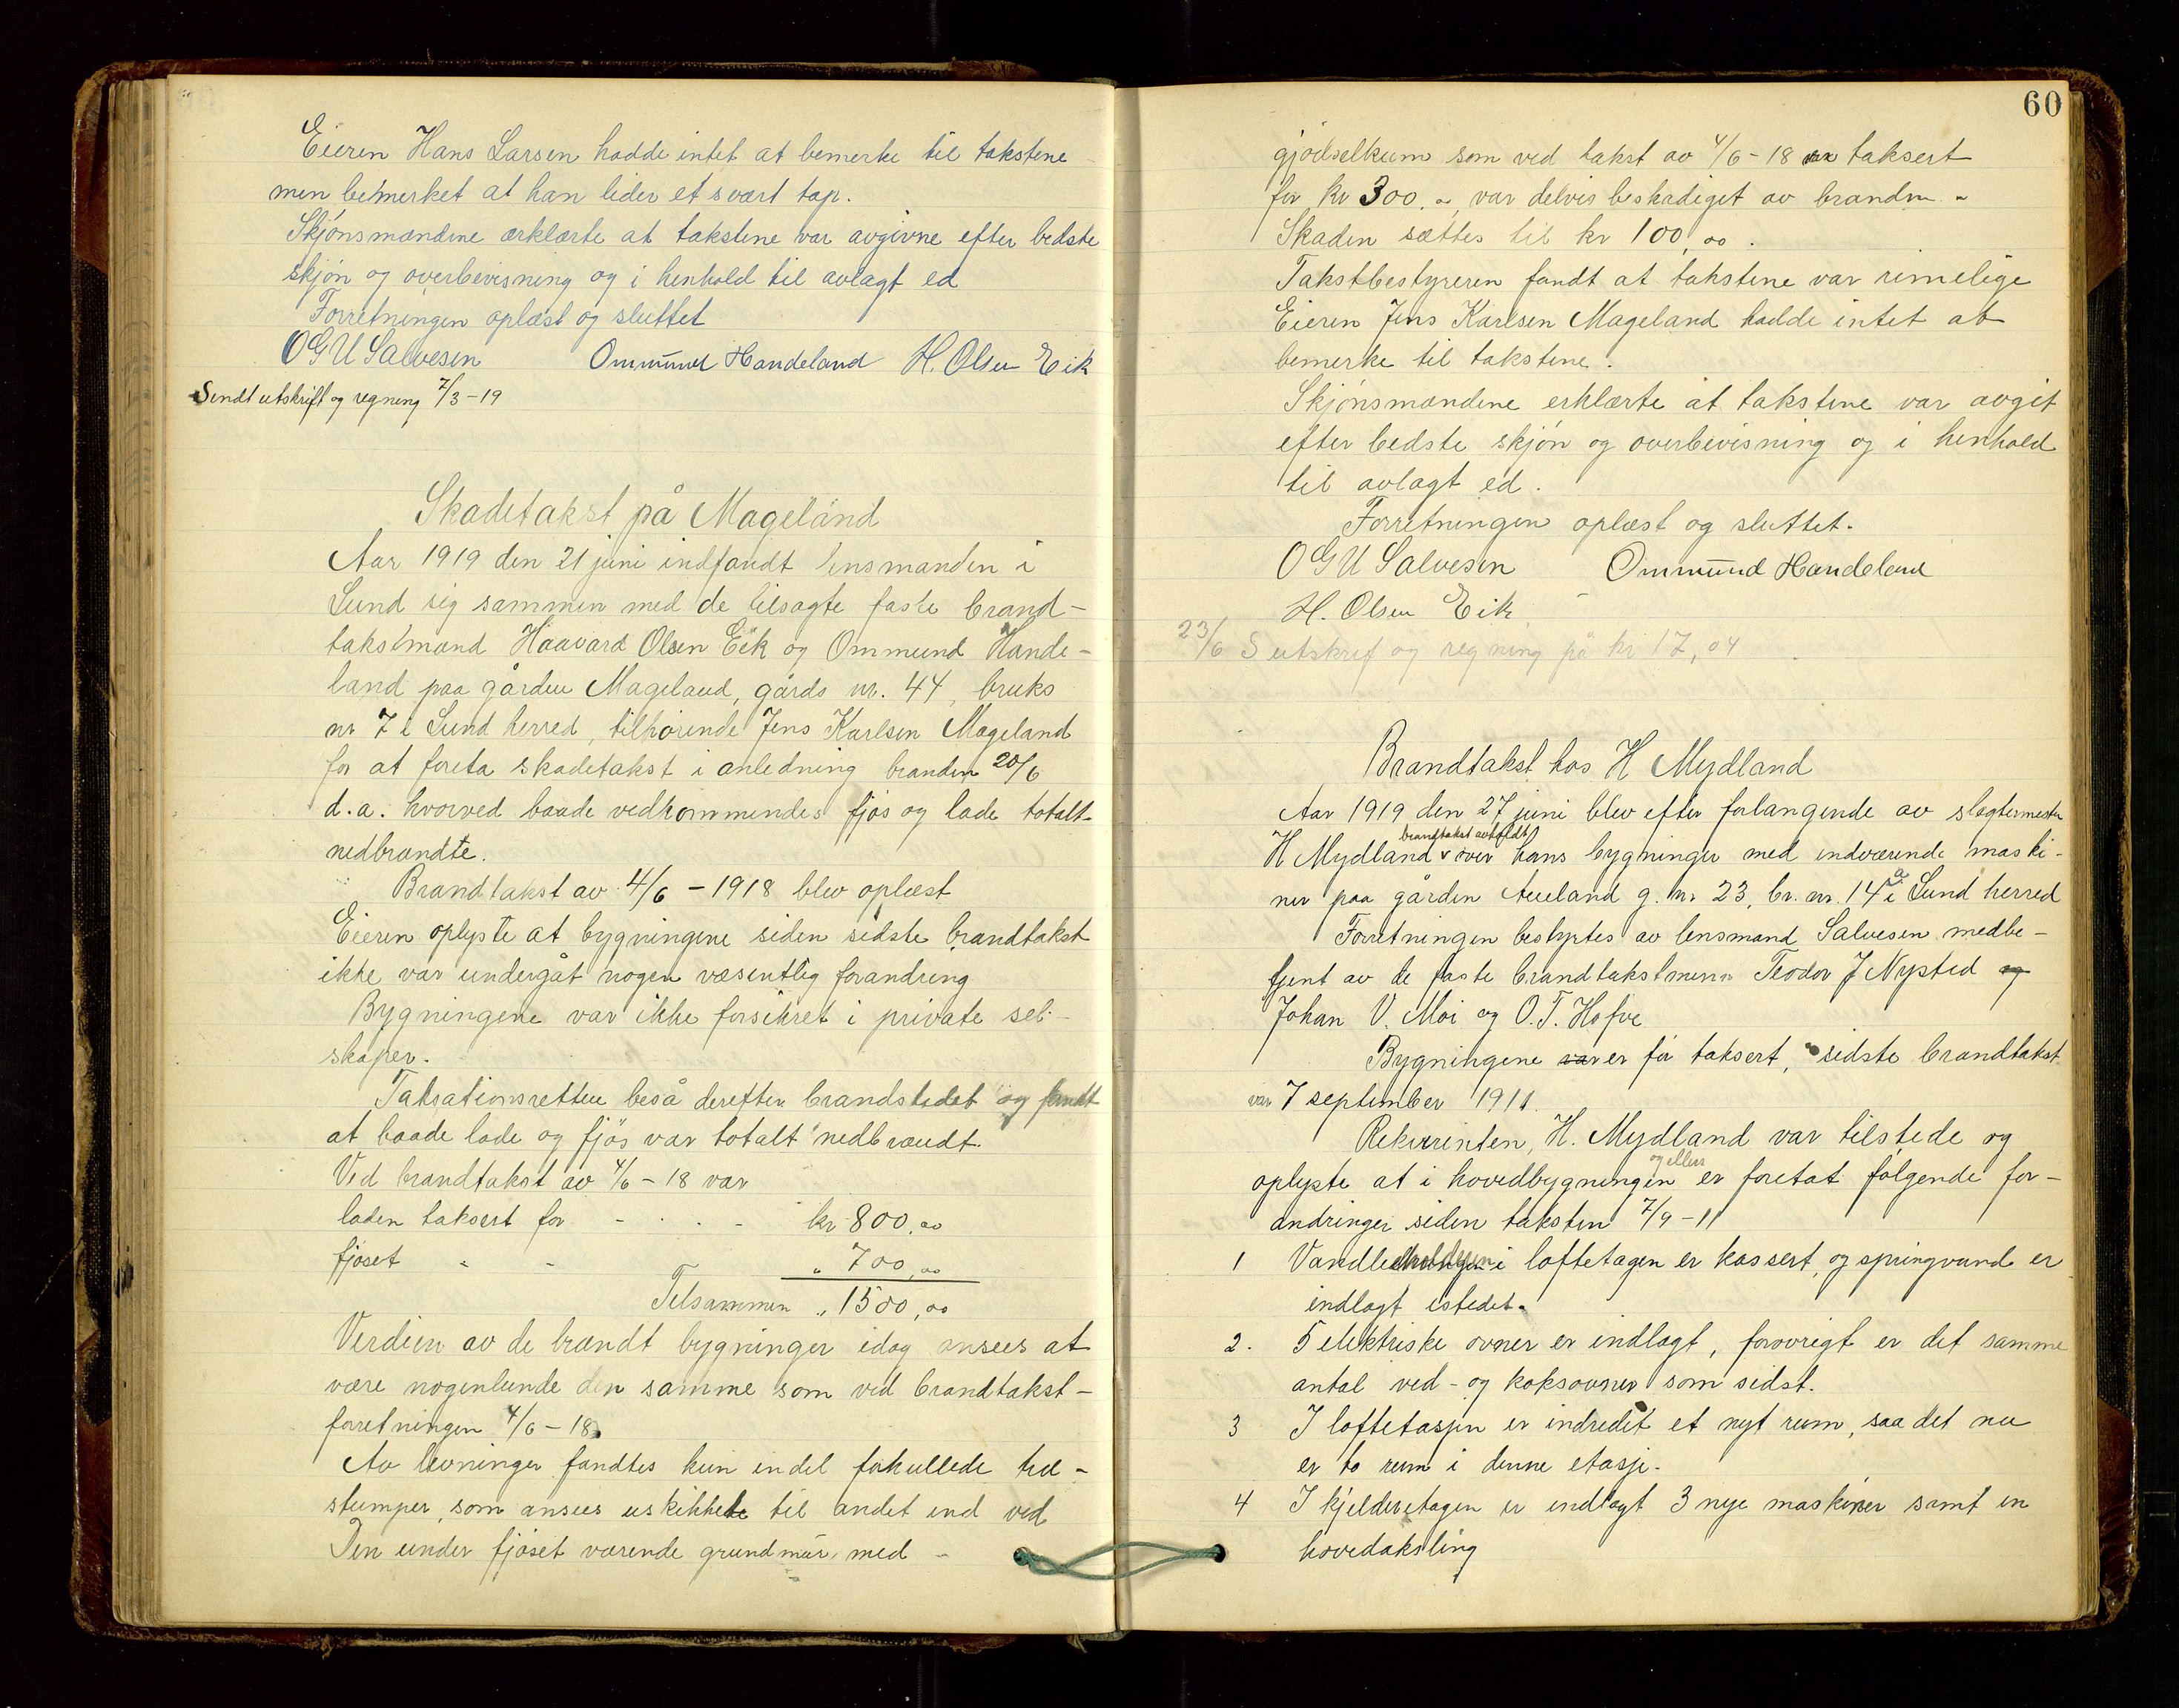 Eieren Hans Larsen hadde intet at bemerke til takstene
men bemerket at han lider et svært tap.
Skjönsmændene ærklærte at takstene var avgivne efter bedste
skjön og overbevisning og i henhold til avlagt ed
Forretningen oplæst og sluttet
O G U Salvesen Ommund Handeland H. Olsen Eik
Sendt utskrift og regning 7/3-19
Skadetakst på Mageland
Aar 1919 den 21 juni indfandt lensmanden i
Lund sig sammen med de tilsagte faste brand-
takstmænd Haavard Olsen Eik og Ommund Hande-
land paa gården Mageland, gårds nr. 44, bruks
nr 7 i Lund herred, tilhörende Jens Karlsen Mageland
for at foreta skadetakst i anledning branden 20/6
d.a. hvorved baade vedkommendes fjös og lade totalt
nedbrændte.
Brandtakst av 4/6 - 1918 blev oplæst
Eieren oplyste at bygningene siden sidste brandtakst
ikke var undergåt nogen væsentlig forandring
Bygningene var ikke forsikret i private sel-
skaper.
Taksationsretten beså derefter brandstedet og fandt
at baade lade og fjös var totalt nedbrændt.
Ved brandtakst av 4/6 - 18 var
laden taksert for - . . - kr 800,00
fjöset " - " 700,00
Tilsammen " 1500,00
Verdien av de brændt bygninger idag ansees at
være nogenlunde den samme som ved brandtakst-
forretningen 4/6 - 18.
Av levninger fandtes kun endel forkullede træ-
stumper, som ansees uskikkede til andet end ved
Den under fjöset værende grundmur, med -
60
gjödselkum som ved takst av 4/6 - 18 var taksert
for kr 300,- var delvis beskadiget av branden -
Skaden sættes til kr 100,00.
Takstbestyreren fandt at takstene var rimelige
Eieren Jens Karlsen Mageland hadde intet at
bemerke til takstene.
Skjönsmændene erklærte at takstene var avgit
efter bedste skjön og overbevisning og i henhold
til avlagt ed.
Forretningen oplæst og sluttet.
O G U Salvesen Ommund Handeland
H. Olsen Eik
23/6 S utskrif og regning på kr 17,04
Brandtakst hos H Mydland
Aar 1919 den 27 juni blev efter forlangende av slagtermester
brandtakst avholdt
H Mydland v over hans bygninger med indværende maski-
ner paa gården Aueland g. nr 23, br. nr. 14 a i Lund herred
Forretningen bestyrtes av lensmand Salvesen medbe-
tjent av de faste brandtakstmenn Teodor J Nysted og
Johan V. Moi og O. T. Hofve
Bygningene var er för taksert, sidste brandtakst
var 7 september 1911.
Rekvirenten, H. Mydland var tilstede og
og ellers
oplyste at i hovedbygningen er foretat følgende for-
andringer siden taksten 7/9 - 11
1 i loftetagen er kassert, og springvand er
indlagt istedet.
2. 5 elektriske ovner er indlagt, forøvrigt er det samme
antal ved- og koksovner som sidst.
3 I loftetasjen er indredet et nyt rum, saa det nu
er to rum i denne etasje.
4 I kjelderetagen er indlagt 3 nye maskiner samt en
hovedaksling